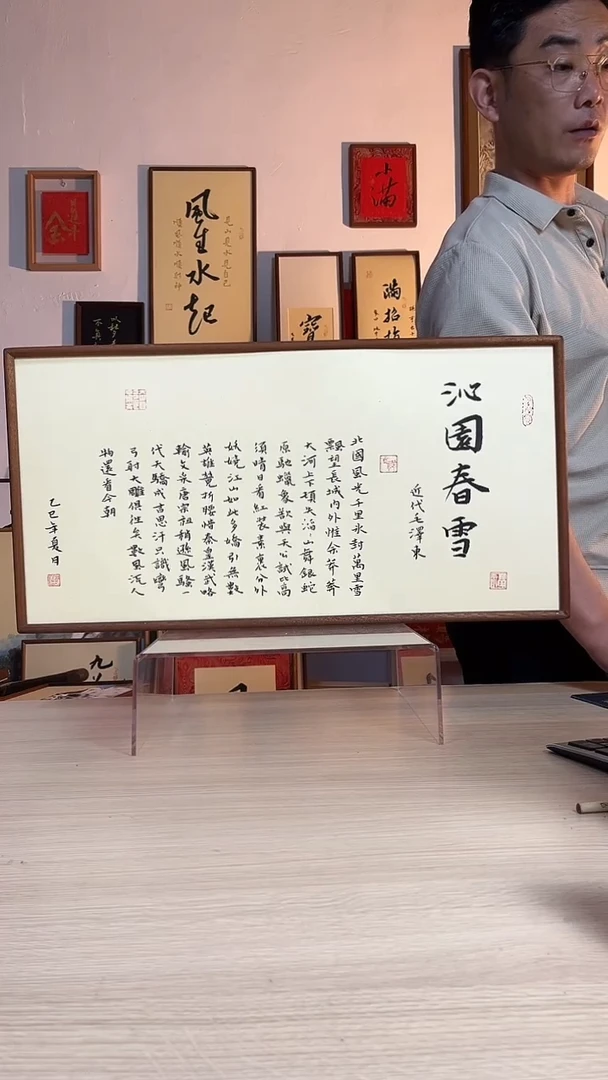 沁園春雪
近代毛澤東
北國風光千里冰封萬里雪
飄望長城內外惟余莽莽
大河上下頓失滔山舞銀蛇
原馳蠟象欲與天公試比高
須晴日看紅裝素裹分外
妖嬈江山如此多嬌引無數
英雄競折腰惜秦皇漢武略
輸文采唐宗祖稍遜風騷一
代天驕成吉思汗只識彎
弓射大雕俱往矣數風流人
物還看今朝
乙巳年夏月
風生水起
順風順水順財神
小滿
滿招損
寶
九